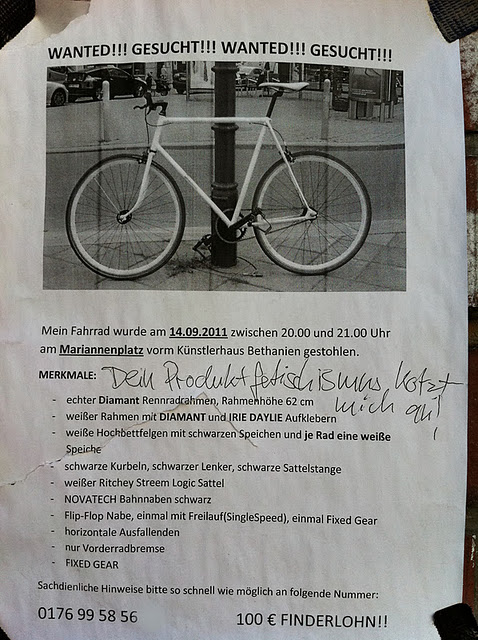 WANTED!!! GESUCHT!!! WANTED!!! GESUCHT!!!
Mein Fahrrad wurde am 14.09.2011 zwischen 20.00 und 21.00 Uhr
am Mariannenplatz vorm Künstlerhaus Bethanien gestohlen.
MERKMALE:
Dein Produktfetischismus kotzt
mich an!
- echter Diamant Rennradrahmen, Rahmenhöhe 62 cm
- weißer Rahmen mit DIAMANT und IRIE DAYLIE Aufklebern
- weiße Hochbettfelgen mit schwarzen Speichen und je Rad eine weiße
Speiche
- schwarze Kurbeln, schwarzer Lenker, schwarze Sattelstange
- weißer Ritchey Streem Logic Sattel
- NOVATECH Bahnnaben schwarz
- Flip-Flop Nabe, einmal mit Freilauf(SingleSpeed), einmal Fixed Gear
- horizontale Ausfallenden
- nur Vorderradbremse
- FIXED GEAR
Sachdienliche Hinweise bitte so schnell wie möglich an folgende Nummer:
0176 99 58 56 100 € FINDERLOHN!!